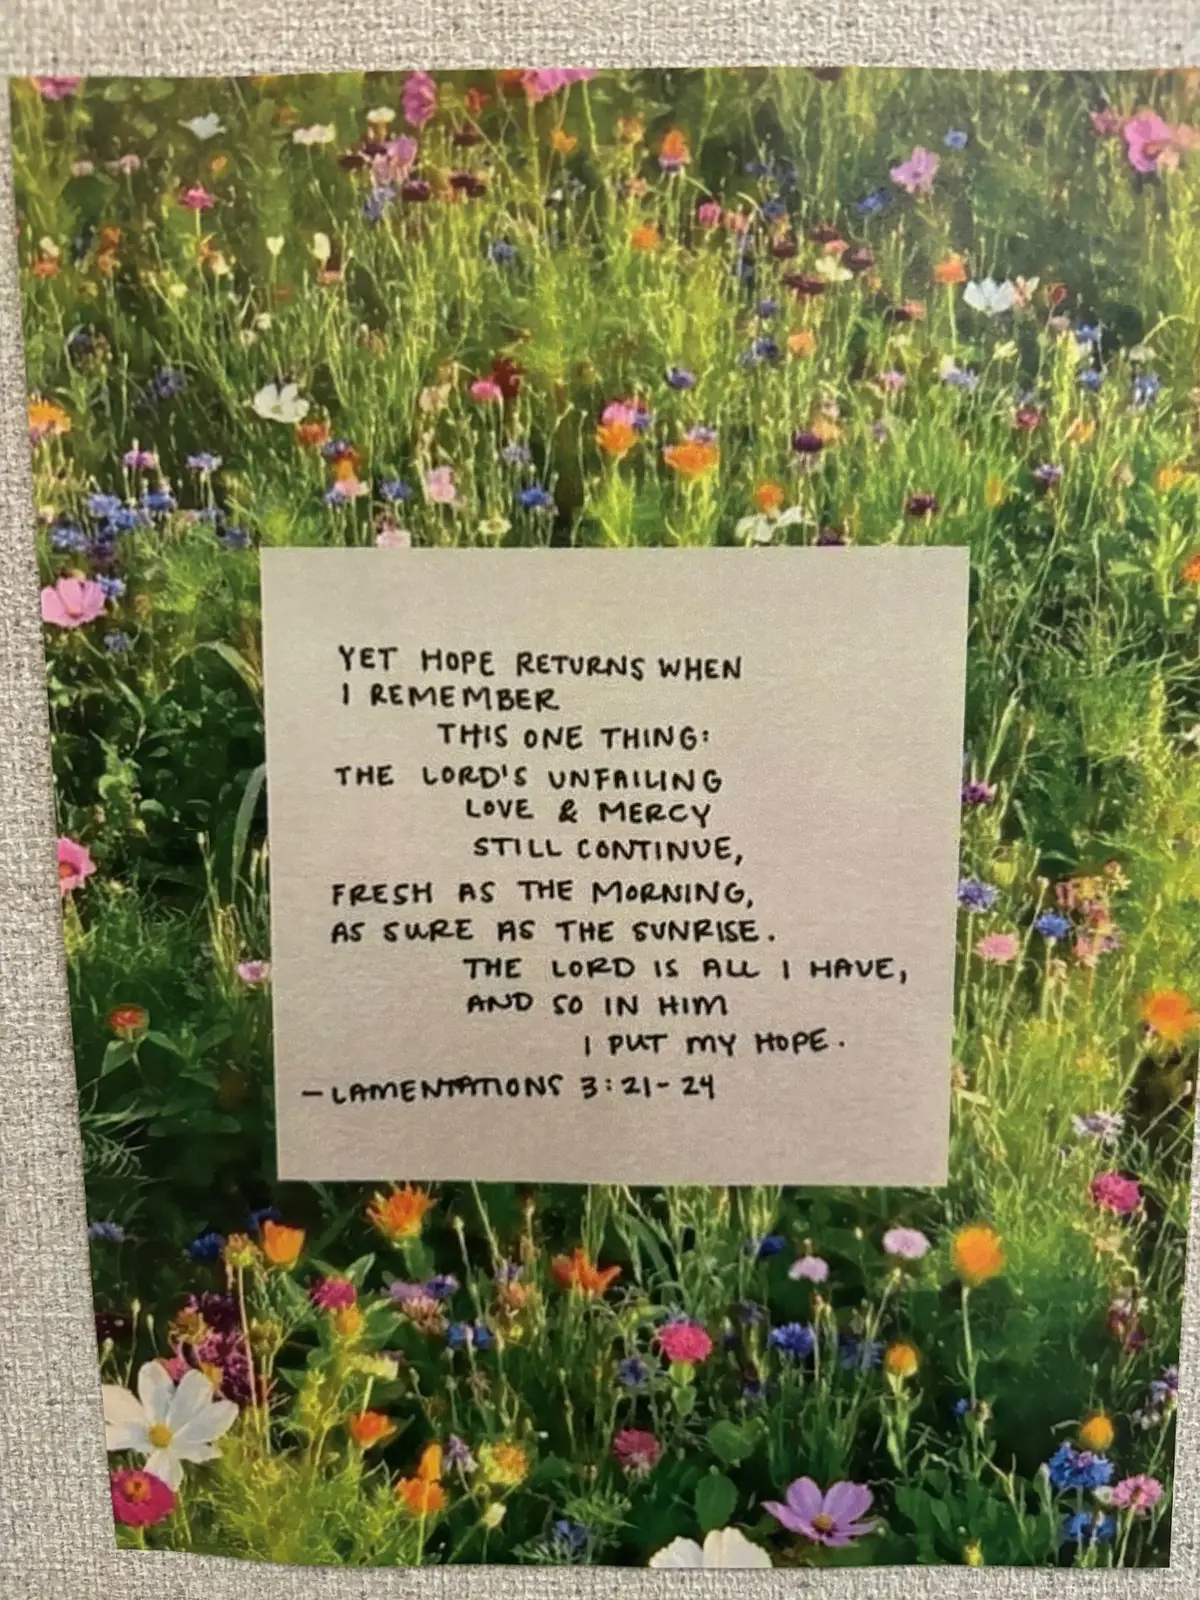 YET HOPE RETURNS WHEN
I REMEMBER
THIS ONE THING:
THE LORD'S UNFAILING
LOVE & MERCY
STILL CONTINUE,
FRESH AS THE MORNING,
AS SURE AS THE SUNRISE.
THE LORD IS ALL I HAVE,
AND SO IN HIM
I PUT MY HOPE.
- LAMENTATIONS 3:21-24